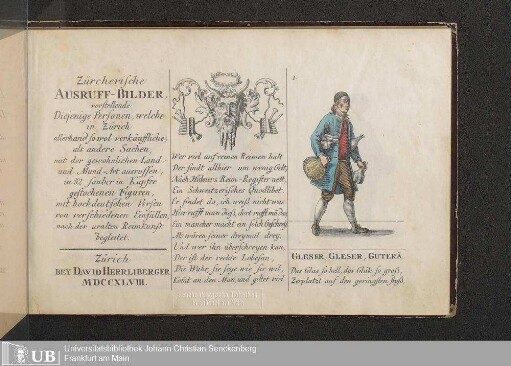 Zürcherische
AUSRUFF-BILDER,
vorstellende
Diejenige Personen, welche
in Zürich
allerhand so wol verkäuffliche,
als andere Sachen,
mit der gewohnlichen Land-
und Mund-Art ausruffen,
in 52 sauber in Kupfer
gestochenen Figuren,
mit hochdeutschen Versen
von verschiedenen Einfällen,
nach der uralten Reimkunst
begleitet.
Zürich
BEY DAVID HERRLIBERGER
MDCCXLVIII.
Wer viel auf reinen Reimen halt
Der findt allhier um wenig Gelt,
Nach Reim-Register nett
Ein Schweitzerisches Quodlibet.
Er findet da, ich weiß nicht was
Hier rufft man diß, dort rufft man das
Ein mancher macht ein solch Geschrey
Als wären seiner dreymal drey,
Und wer ihn überschreyen kan,
Der ist der rechte
Die Wahr, sie seye wie sie wil,
Kömt an den Man, und giltet viel
1.
GLESER, GLESER, GUTERÄ.
Das Glas so hell, das Glük so groß,
Zerplatzt auf den geringsten Stoß.
UB
Universitätsbibliothek Johann Christian Senckenberg
Frankfurt am Main